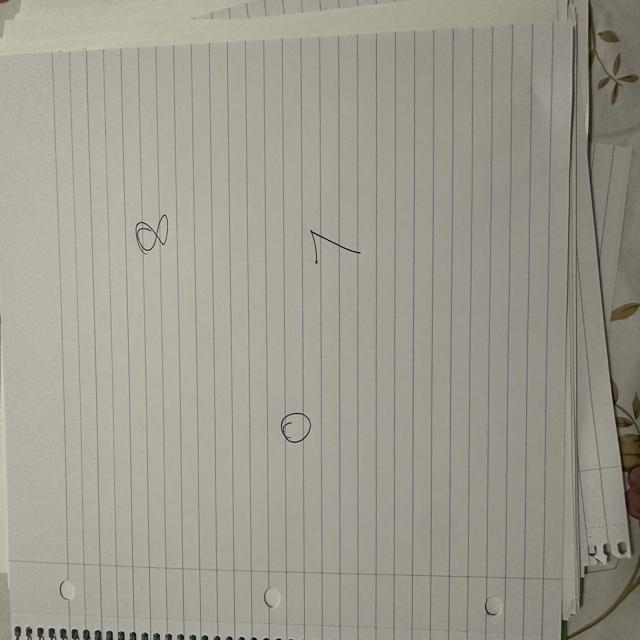 8
0
7